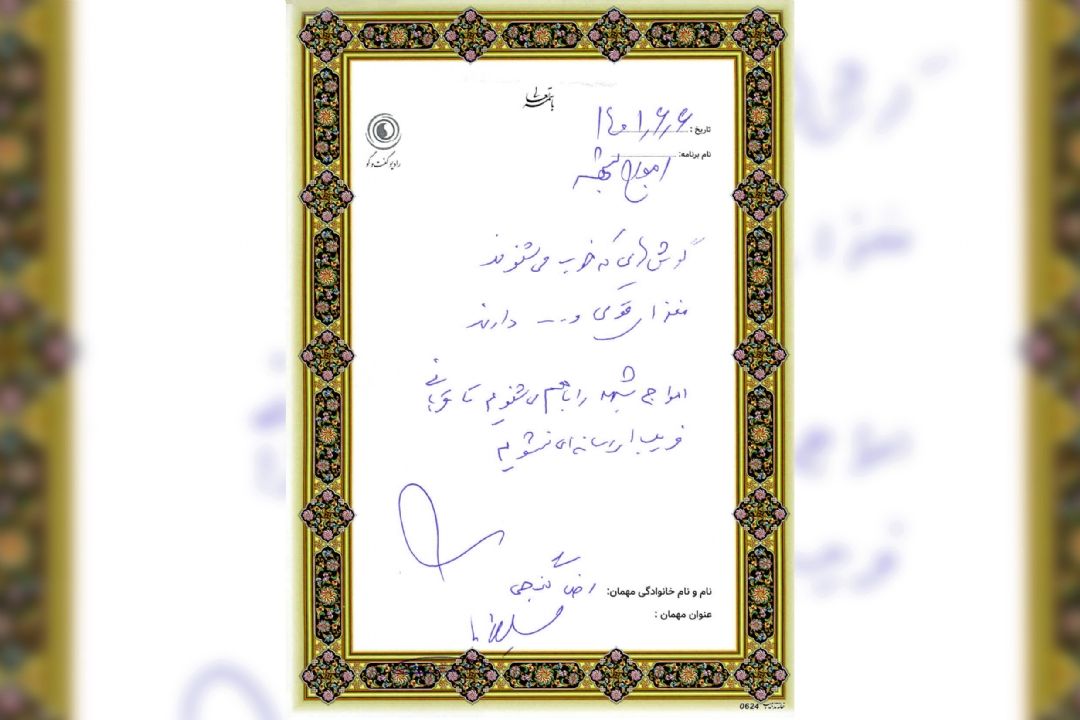 باسمه تعالی
رادیو گفت‌وگو
تاریخ : ۱۴۰۱٫۶٫۶
نام برنامه:
امواج شبهه
گوش‌های که خوب می‌شنوند
مغزهای قوی و ... دارند
امواج شبهه را با هم می‌شنویم تا قربانی
فریب رسانه‌ای نشویم
نام و نام خانوادگی مهمان: رضا گنجی
عنوان مهمان :
0624